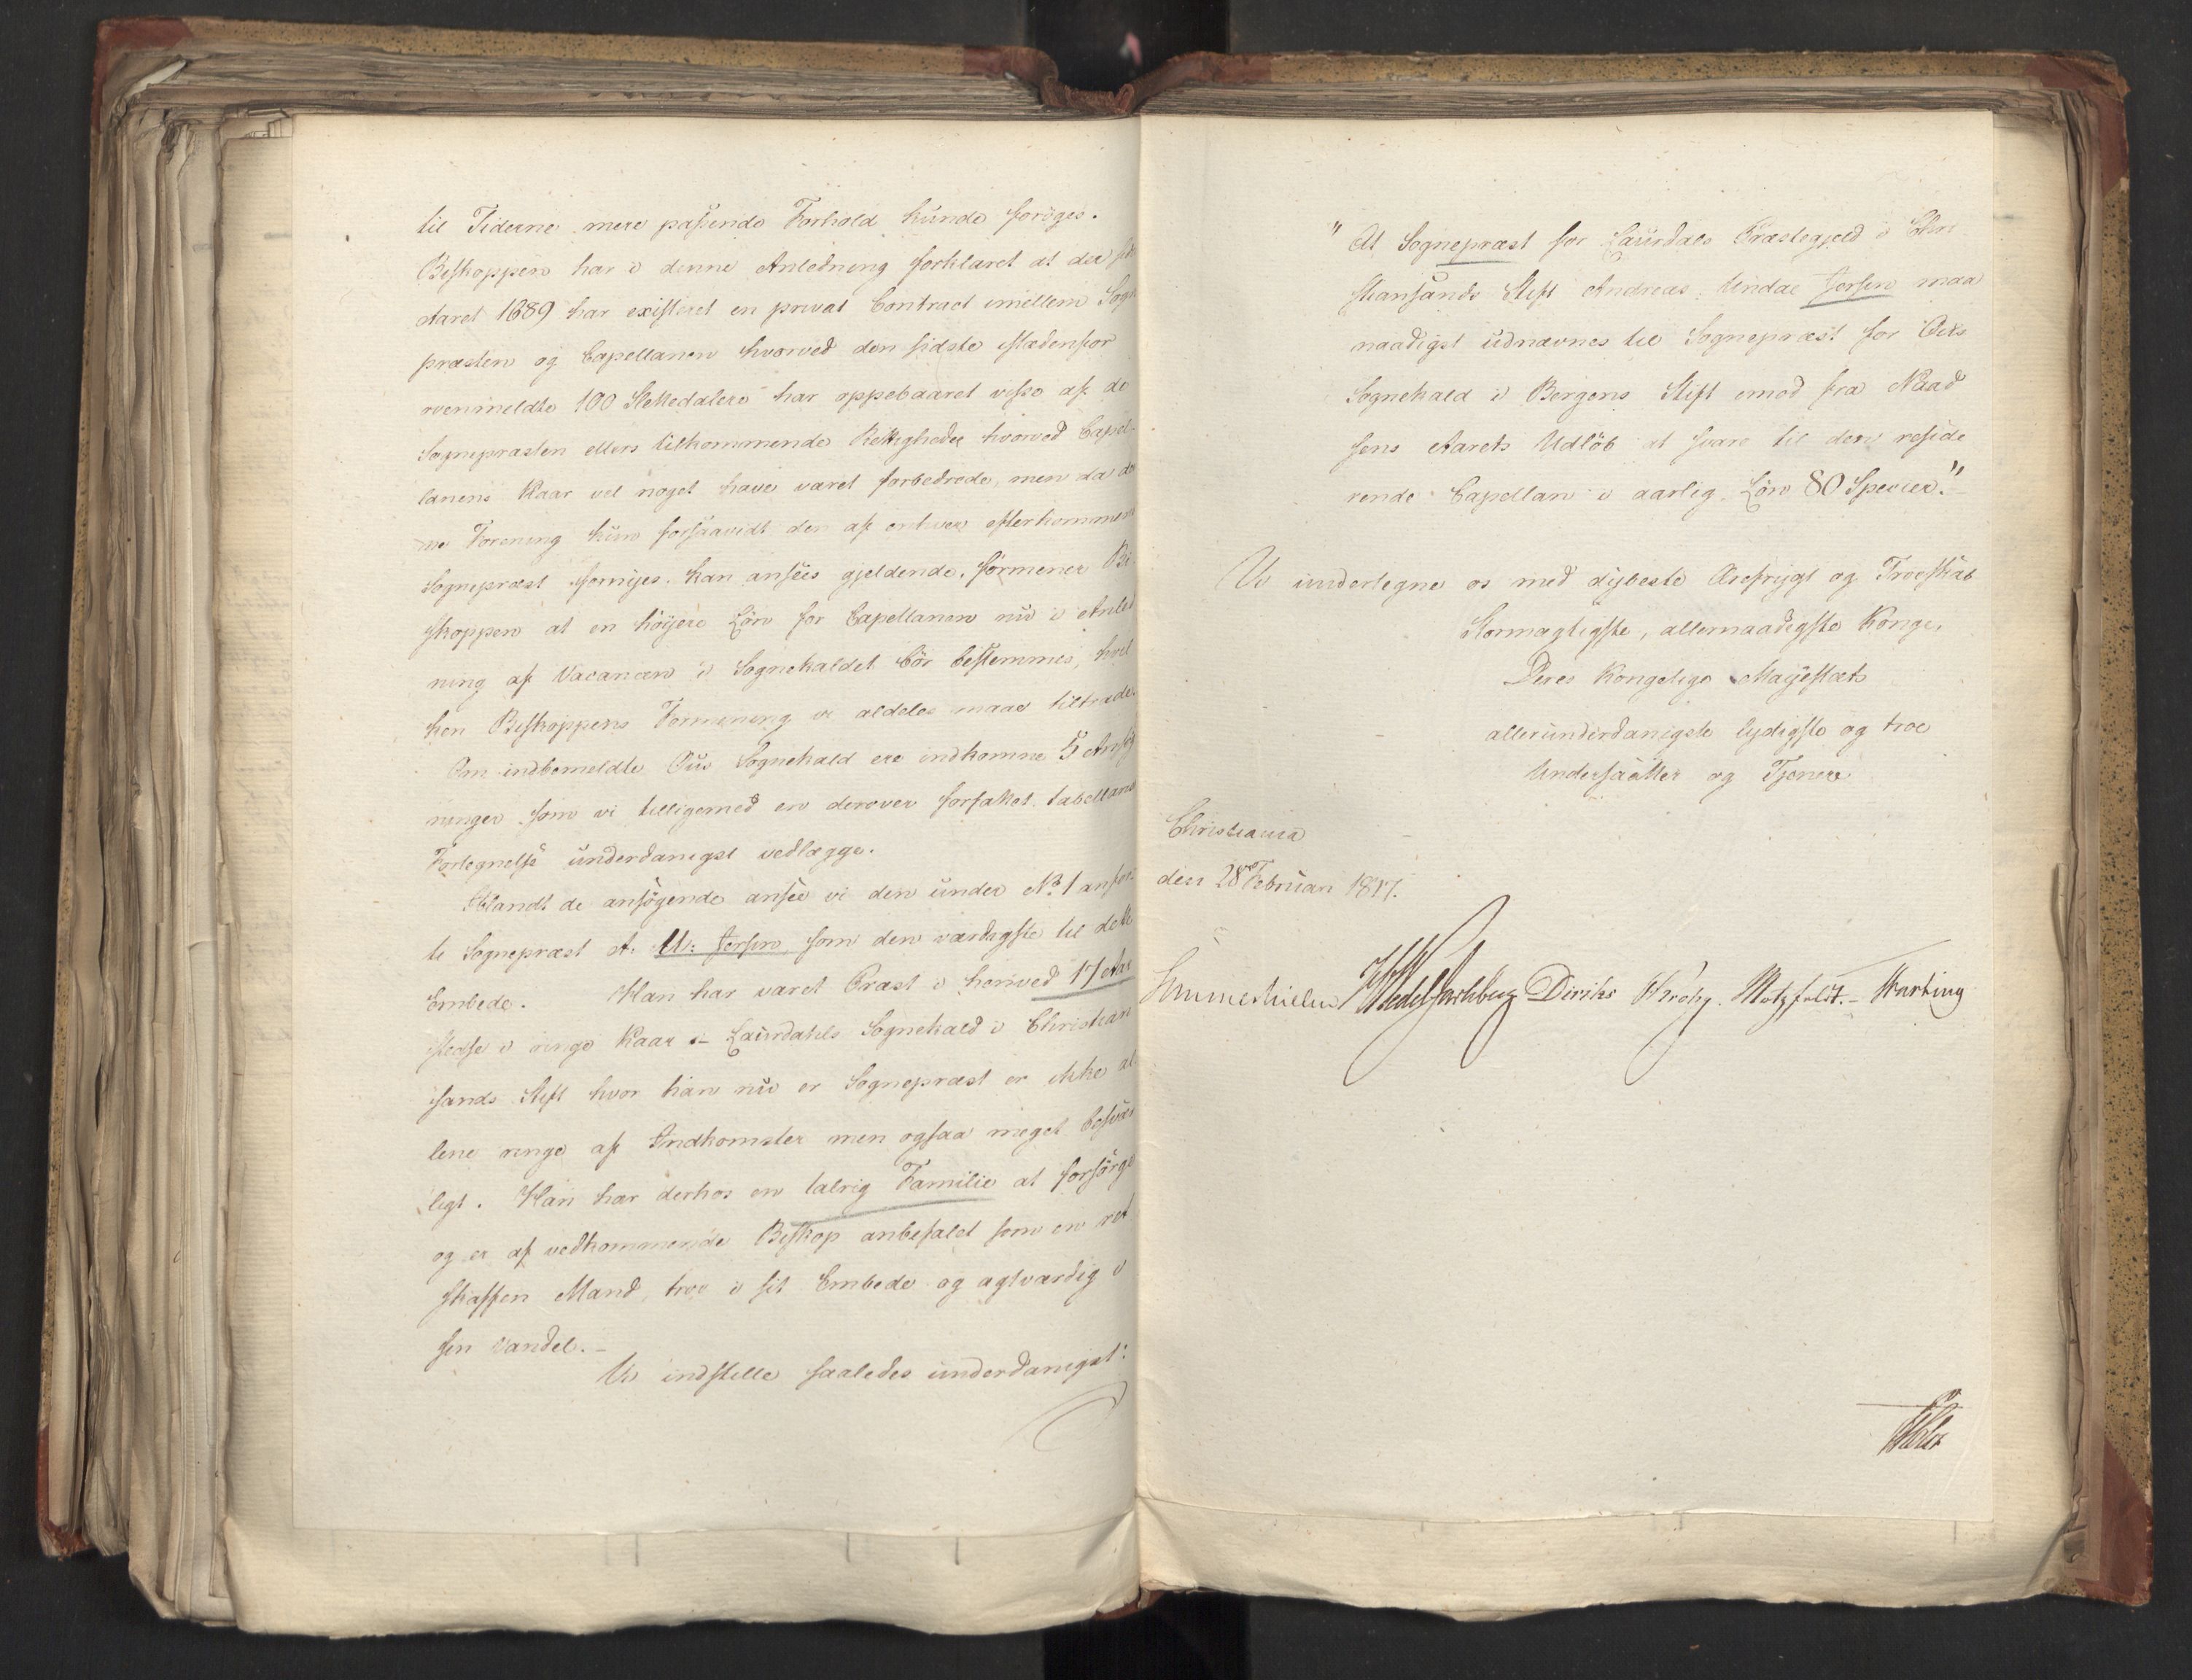 til Tiderne mere passende Forhold kunde forøges.
Biskoppen har i denne Anledning forklaret at der
Aaret 1689 har existeret en privat Contract imellem Sogne
præsten og Capellanen hvorved den sidste istædenfor
ovenmeldte 100 Slettedalere har oppebaaret visse af de
Sognepræsten ellers tilkommende Rettigheder hvorved Capel-
lanens Kaar vel noget have været forbedrede, men da den
ne Forening kun forsaavidt den af enhver efterkommende
Sognepræst fornÿes kan ansees gjeldende, förmener Bi-
skoppen at en höÿere Lön for Capellanen nu i Anled
ning af Vacancen i Sognekaldet bör bestemmes, hvil
ken Biskoppens Formening vi aldeles maae tiltræde.
Om indbemeldte Ous Sognekald ere indkomne 5 Ansög
ninger som vi tilligemed en derover forfattet tabellarisk
Fortegnelse underdanigst vedlægge.
Iblandt de ansögende ansee vi den under No 1 anför
te Sognepræst A: U: Jersin som den værdigste til dette
Embede. Han har været Præst i henved 17 Aar
stedse i ringe Kaar – Laurdahls Sognekald i Christian
sands Stift hvor han nu er Sognepræst er ikke al
lene ringe af Indkomster men ogsaa meget besvær
ligt. Han har derhos en talrig Familie at forsörge
og er af vedkommende Biskop anbefalet som en ret
skaffen Mand, troe i sit Embede og agtværdig i
sin Vandel. –
Vi indstille saaledes underdanigst:
" At Sognepræst for Laurdals Præstegjeld i Chri
stiansands Stift Andreas Undal Jersin maa
naadigst udnævnes til Sognepræst for
Sognekald i Bergens Stift imod fra Naad
sens Aarets Udlöb at svare til den reside
rende Capellan i aarlig Lön 80 Specier."
Vi undertegne os med dÿbeste Ærefrÿgt og Troeskab
Stormægtigste, allernaadigste Konge,
Deres Kongelige Majestæts
allerunderdanigste lydigste og troe
Undersaatter og Tjenere
Christiania
den 28de Februari 1817.
Sommerhielm Wedel Jarlsberg Diriks Krohg. Motzfeldt. – Harbing